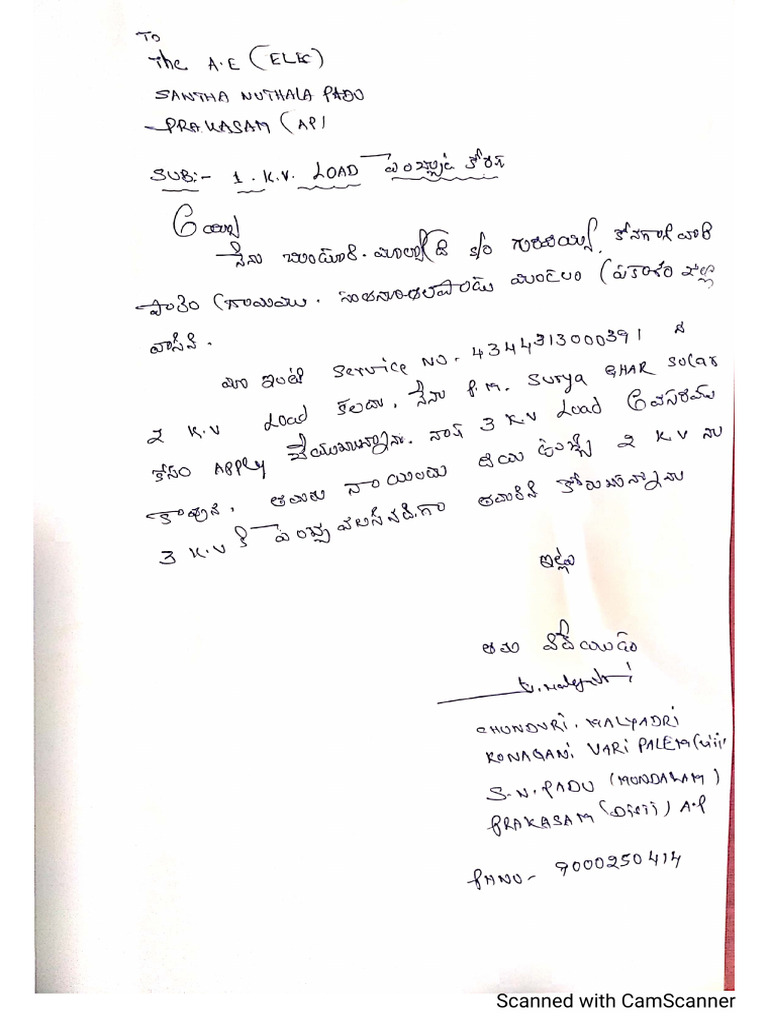 To
The A.E (ELEC)
SANTHA NUTHALA PADU
PRAKASAM (AP)
SUB:- 1. K.V. LOAD పెంచుట కోరిక
అయ్యా
నేను చుండూరి. మాల్యాద్రి S/o గురవయ్య, కోనగాని వారి
పాలెం గ్రామము. సంతనూతలపాడు మండలం ప్రకాశం జిల్లా
వాసిని.
మా ఇంటి Service NO- 4344313000391 న
2 K.V Load కలదు. నేను P.M. Surya GHAR Solar
కోసం Apply చేయుచున్నాను. నాకు 3 KV Load అవసరము
కావున. తమరు నా యందు దయ ఉంచి 2 KV ను
3 K.V కి పెంచ వలసినదిగా తమరిని కోరుచున్నాను
ఇట్లు
తమ విధేయుడు
CHUNDURI. MALYADRI
KONAGANI VARI PALEM (vill)
S.N. PADU (MONDALAM)
PRAKASAM (Dist) A.P
PHNO- 9000250414
Scanned with CamScanner